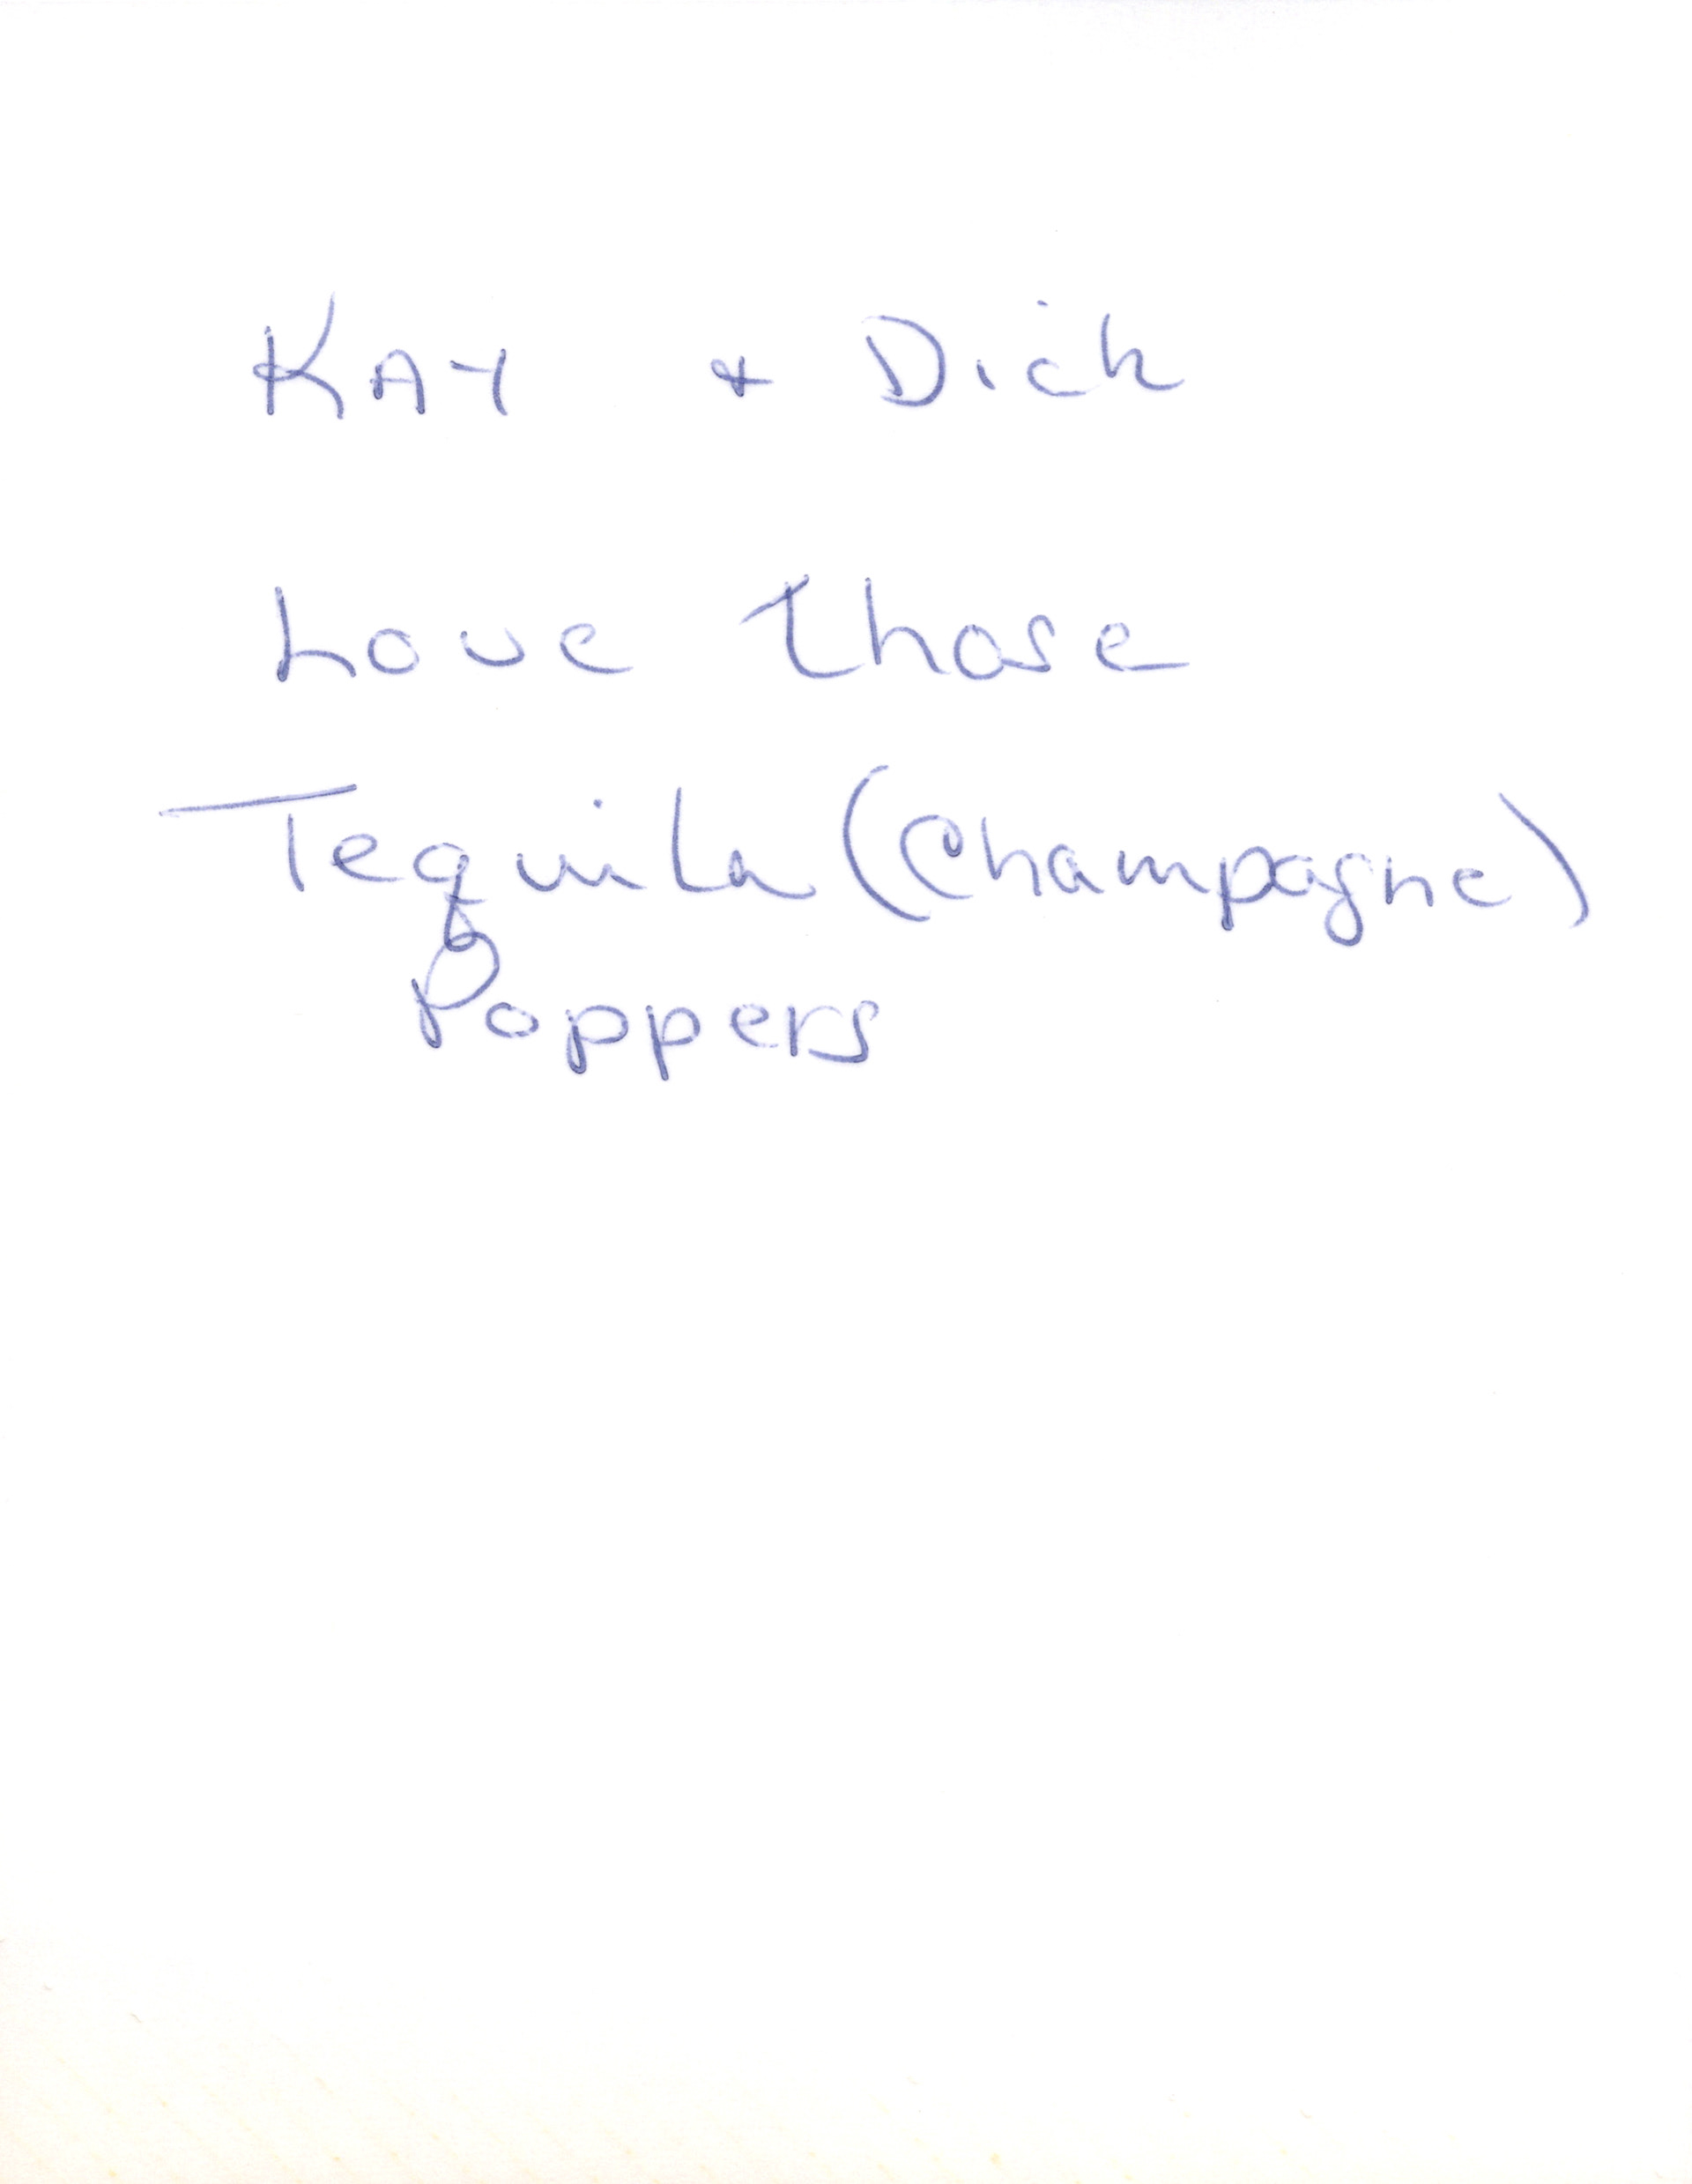 KAY & Dick
Love Those
Tequila (Champagne)
Poppers